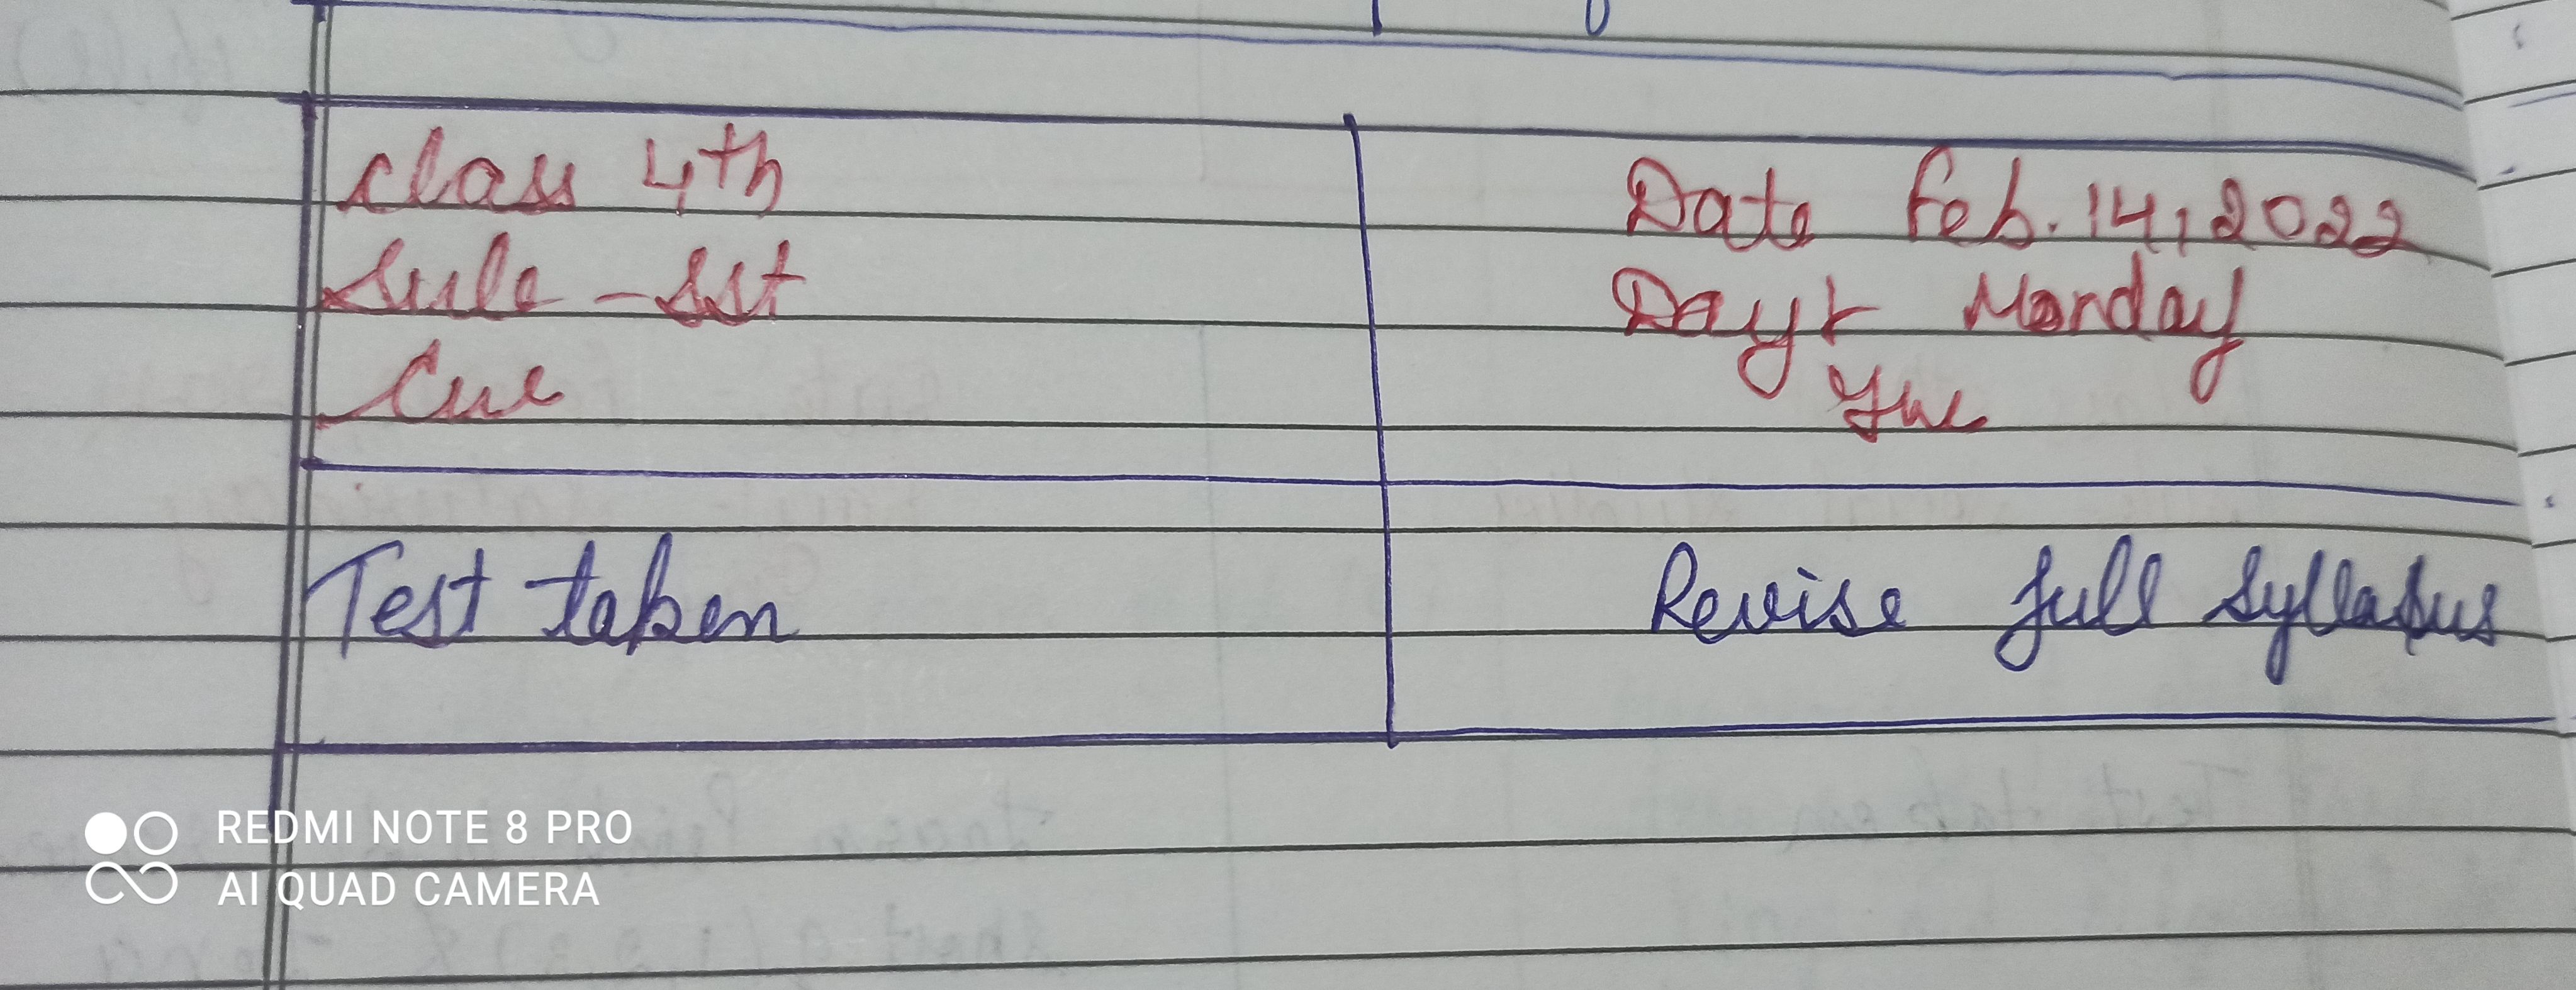 Class 4th
Date Feb. 14, 2022
Sub - SSt
Day:- Monday
Cw
Hw
Test taken
Revise full Syllabus
REDMI NOTE 8 PRO
AI QUAD CAMERA